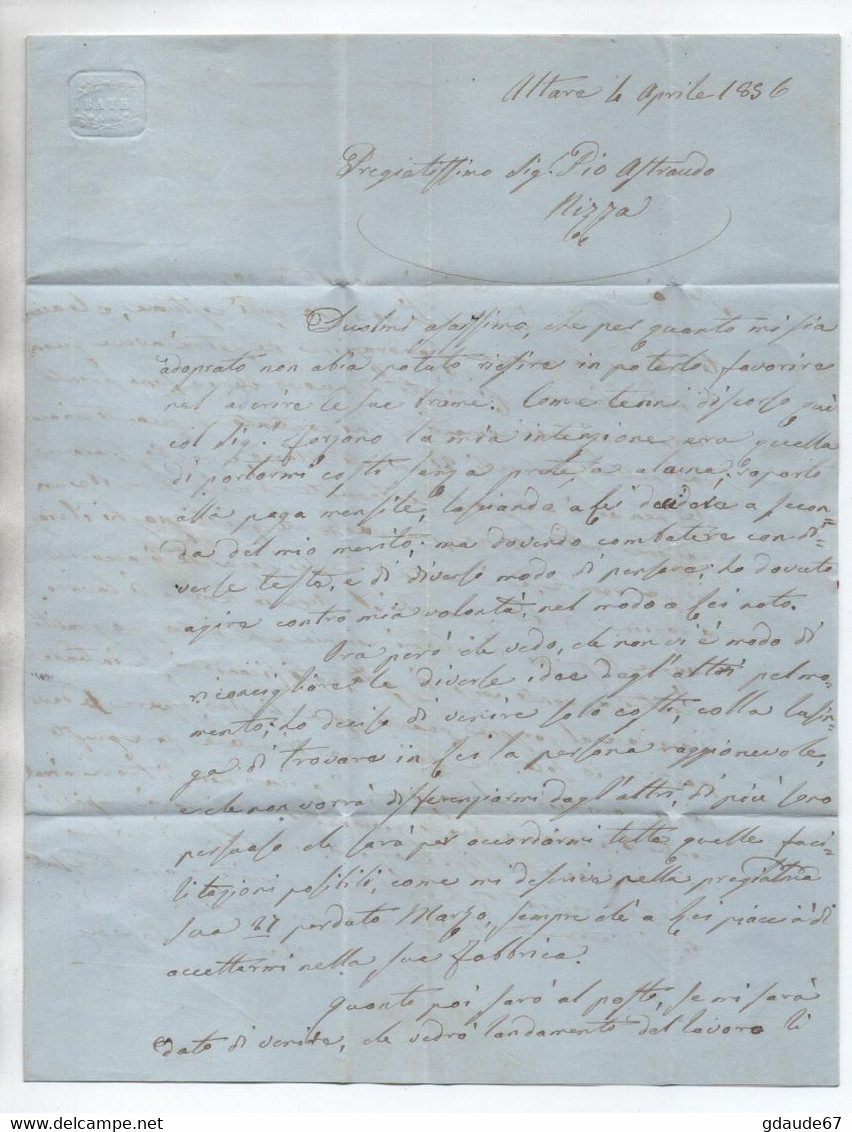 BATH
Altare 4 Aprile 1856
Pregiatissimo Sig.r Pio Astraudo
Nizza
Duolmi asaissimo, che per quanto mi sia
adoprato non abia potuto riesire in poterlo favorire
nel averire le sue brame. Come tenni discorso qui
col Sig.r Forzano la mia intenzione era quella
di portarmi costi senza pretesa alcuna, raporto
alla paga mensile, lasciando a Lei decidere a secon=
da del mio merito; ma dovendo combatere con di=
verse teste, e di diverso modo di pensare; ho dovuto
agire contro mia volontà, nel modo a Lei noto.
Ora però che vedo, che non vi è modo di
riconcigliare le diverse idee degl'altri pel mo=
mento; ho deciso di venire solo costi, colla lusin=
ga di trovare in Lei la persona raggionevole,
e che non vorrà differenziarmi dagl'altri, di più sono
persuaso che sarà per accordarmi tutte quelle faci=
litazioni posibili, come mi descrive nella pregiatma
sua 27 perduto Marzo, sempre che a Lei piaccia di
accettarmi nella sua fabbrica.
Quanto poi sarò al posto, se mi sarà
dato di venire, che vedrò landamento del lavoro li
gdaude67